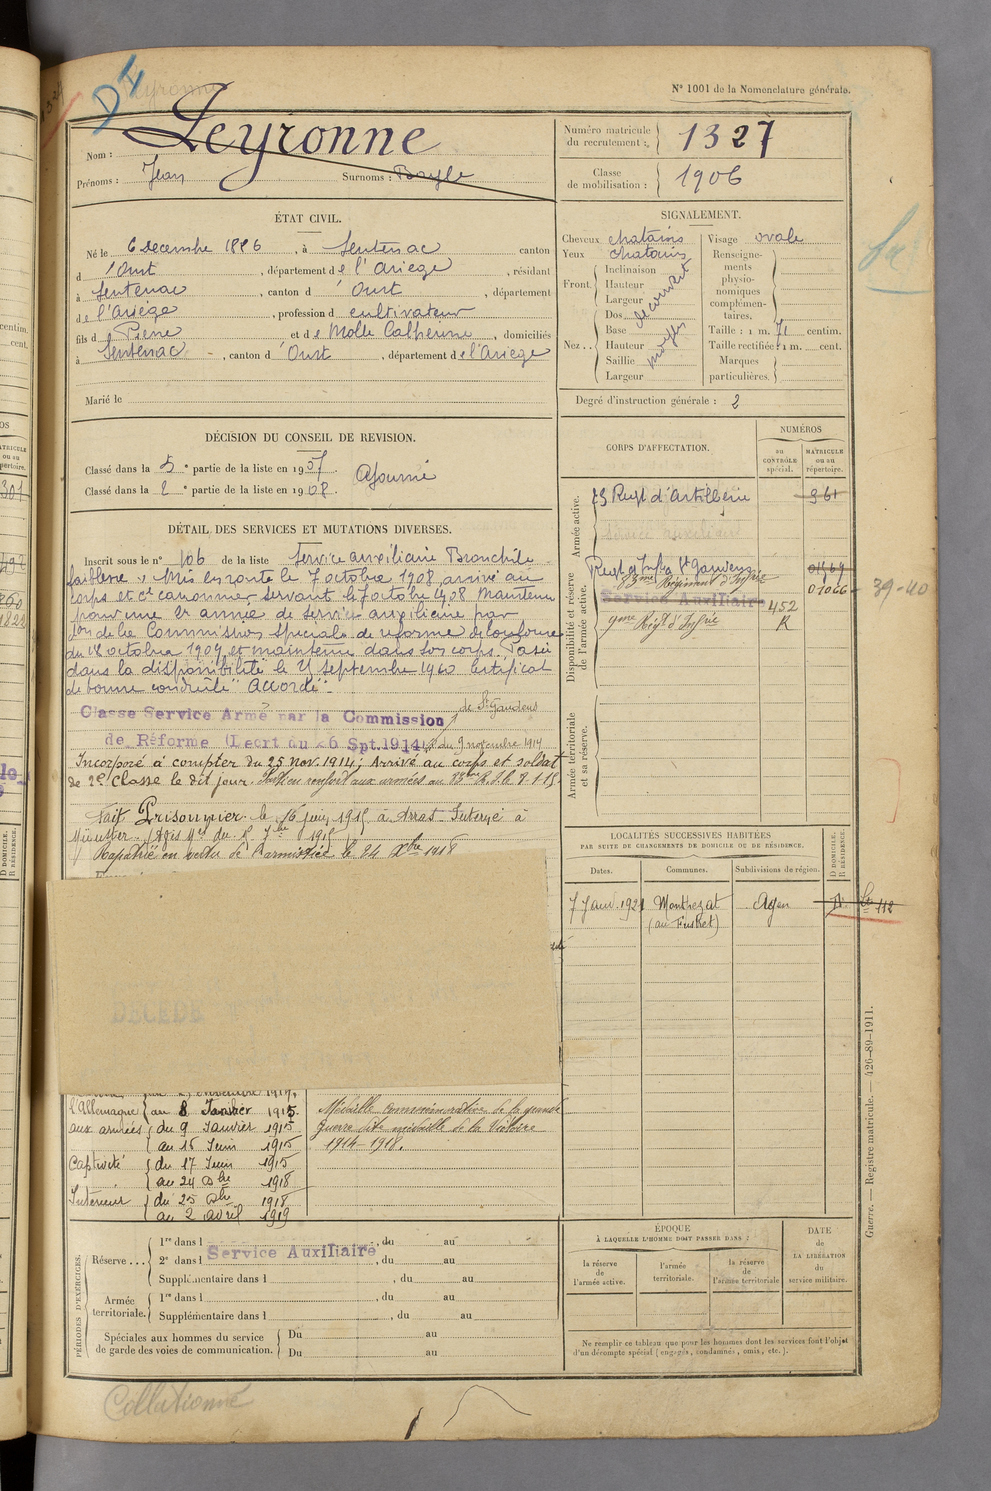 D4
N° 1001 de la Nomenclature générale.
Nom : Leyronne
Prénoms : Jean Surnoms : Bayle
Numéro matricule du recrutement : 1327
Classe de mobilisation : 1906
ÉTAT CIVIL.
Né le 6 Decembre 1886, à Sentenac canton
d'Oust, département de l'Ariège, résidant
à Sentenac, canton d'Oust, département
de l'Ariège, profession de cultivateur
fils de Pierre et de Molle Catherine, domiciliés
à Sentenac, canton d'Oust, département de l'Ariège
Marié le
SIGNALEMENT.
Cheveux chatains
Yeux chatains
Front. Inclinaison
Hauteur
Largeur
Nez .. Dos
Base
Hauteur
Saillie
Largeur
Visage ovale
Renseignements physionomiques complémentaires.
Taille : 1 m. 71 centim.
Taille rectifiée : 1 m. cent.
Marques particulières.
Degré d'instruction générale : 2
DÉCISION DU CONSEIL DE REVISION.
Classé dans la 5e partie de la liste en 1907. Ajourné
Classé dans la 2e partie de la liste en 1908.
DÉTAIL DES SERVICES ET MUTATIONS DIVERSES.
Inscrit sous le n° 106 de la liste Service auxiliaire Bronchite
faiblesse. Mis en route le 7 octobre 1908, arrivé au
corps et 2e canonnier servant le 7 octobre 1908. Maintenu
pour une 2e année de service auxiliaire par
don de la Commission Spéciale de réforme de
du 18 octobre 1909, et maintenu dans son corps. Passé
dans la disponibilité le 25 Septembre 1910 Certificat
de bonne conduite "Accordé".
Classe Service Armé par la Commission de St Gaudens
de Réforme (Décret du 26 Spt. 1914) du 9 novembre 1914
Incorporé à compter du 25 nov. 1914; Arrivé au corps et soldat
de 2e Classe le dit jour. Parti en renfort aux armées au 83me R.I. le 8.1.15.
Fait Prisonnier le 16 juin 1915 à Arras. Interné à
Münster.
Rapatrié en vertu de l'armistice le 24 Xbre 1918
DÉCÉDÉ
l'Allemagne au 8 Janvier 1915.
aux armées du 9 Janvier 1915
au 16 Juin 1915
Captivité du 17 Juin 1915
au 24 Dbre 1918
Intérieur du 25 Dbre 1918
au 2 avril 1919
Médaille commémorative de la grande
guerre dite médaille de la Victoire
1914-1918.
CORPS D'AFFECTATION.
NUMÉROS
au CONTRÔLE spécial.
MATRICULE ou au répertoire.
Armée active.
Regt d'Artillerie 361
Service auxiliaire
Disponibilité et réserve de l'armée active.
Regt d'Infie St Gaudens
83me Régiment d'Infrie 01066
39-40
Service Auxiliaire 452
9me Régt d'Infrie R
Armée territoriale et sa réserve.
LOCALITÉS SUCCESSIVES HABITÉES
PAR SUITE DE CHANGEMENTS DE DOMICILE OU DE RÉSIDENCE.
Dates. Communes. Subdivisions de région. D DOMICILE. R RÉSIDENCE.
7 Janv. 1921 Montpezat Agen
112
PÉRIODES D'EXERCICES.
Réserve ... 1re dans l , du au
2e dans l Service Auxiliaire , du au
Supplémentaire dans l , du au
Armée territoriale. 1re dans l , du au
Supplémentaire dans l , du au
Spéciales aux hommes du service de garde des voies de communication. Du au
Du au
ÉPOQUE
À LAQUELLE L'HOMME DOIT PASSER DANS :
la réserve de l'armée active.
l'armée territoriale.
la réserve de l'armée territoriale
DATE de LA LIBÉRATION du service militaire.
Ne remplir ce tableau que pour les hommes dont les services font l'objet
d'un décompte spécial (engagés, condamnés, omis, etc.).
Guerre. — Registre matricule. — 426-89-1911.
Collationné